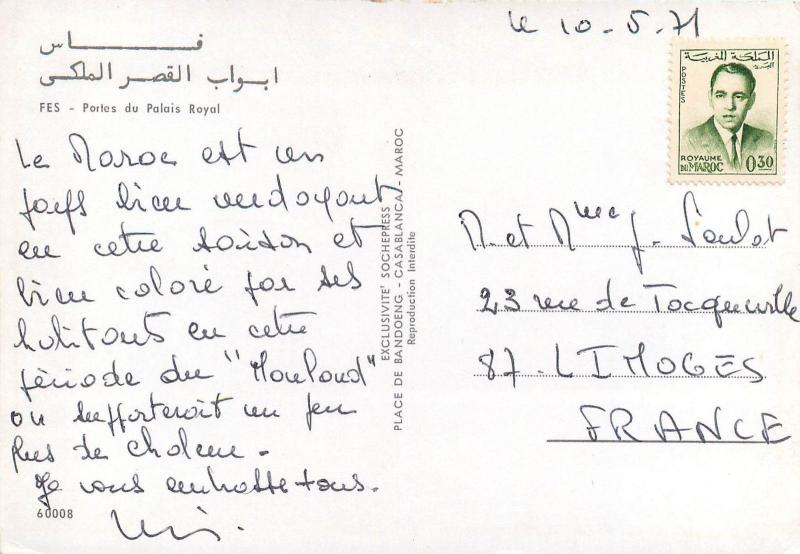 le 10-5-71
فاس
ابواب القصر الملكي
FES - Portes du Palais Royal
المملكة المغربية
البريد
POSTES
ROYAUME
DU MAROC 0.30
Le Maroc est un
pays bien verdoyant
en cette saison et
bien coloré par ses
habitants en cette
période du "Mouloud"
on supporterait un peu
plus de chaleur.
Je vous embrasse tous.
60008
EXCLUSIVITE' SOCHEPRESS
PLACE DE BANDOENG - CASABLANCA - MAROC
Reproduction Interdite
M. et Mme J.
23 rue de Tocqueville
87. LIMOGES
FRANCE